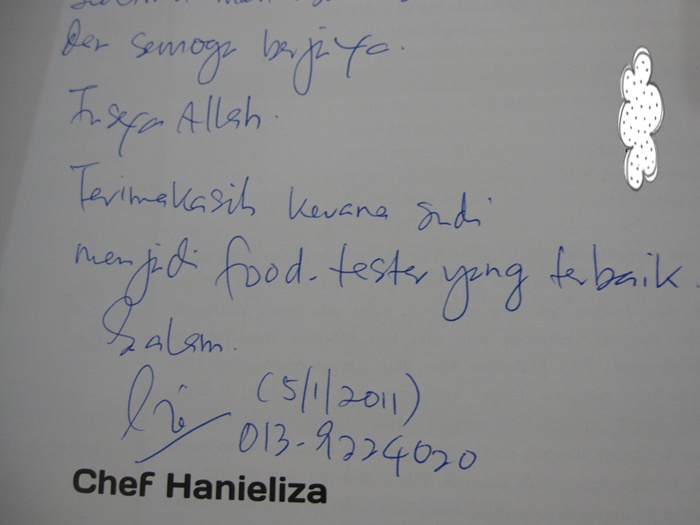 Dan semoga berjaya.
Insya Allah.
Terimakasih kerana sudi
menjadi food-tester yang terbaik.
Salam.
(5/1/2011)
013-9224020
Chef Hanieliza